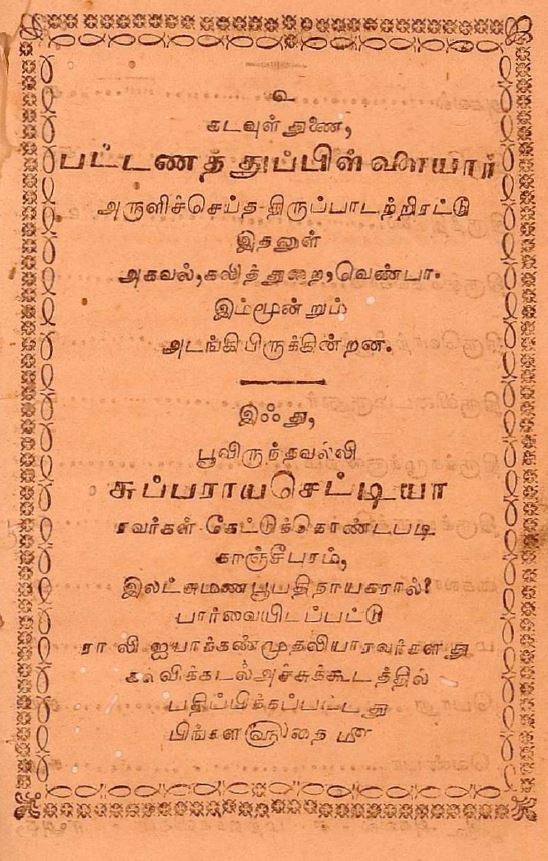 உ
கடவுள் துணை,
பட்டணத்துப்பிள்ளையார்
அருளிச்செய்த-திருப்பாடற்றிரட்டு
இதனுள்
அகவல்,கலித்துறை,வெண்பா.
இம்மூன்றும்
அடங்கியிருக்கின்றன.
இஃது,
பூவிருந்தவல்லி
சுப்பராயசெட்டியா
ரவர்கள்-கேட்டுக்கொண்டபடி
காஞ்சீபுரம்,
இலட்சுமணபூபதிநாயகரால்
பார்வையிடப்பட்டு
ரா லி ஐயாக்கண்முதலியாரவர்களது
கல்விக்கடல்அச்சுக்கூடத்தில்
பதிப்பிக்கப்பட்டது
பிங்கள ௵ தை ௴